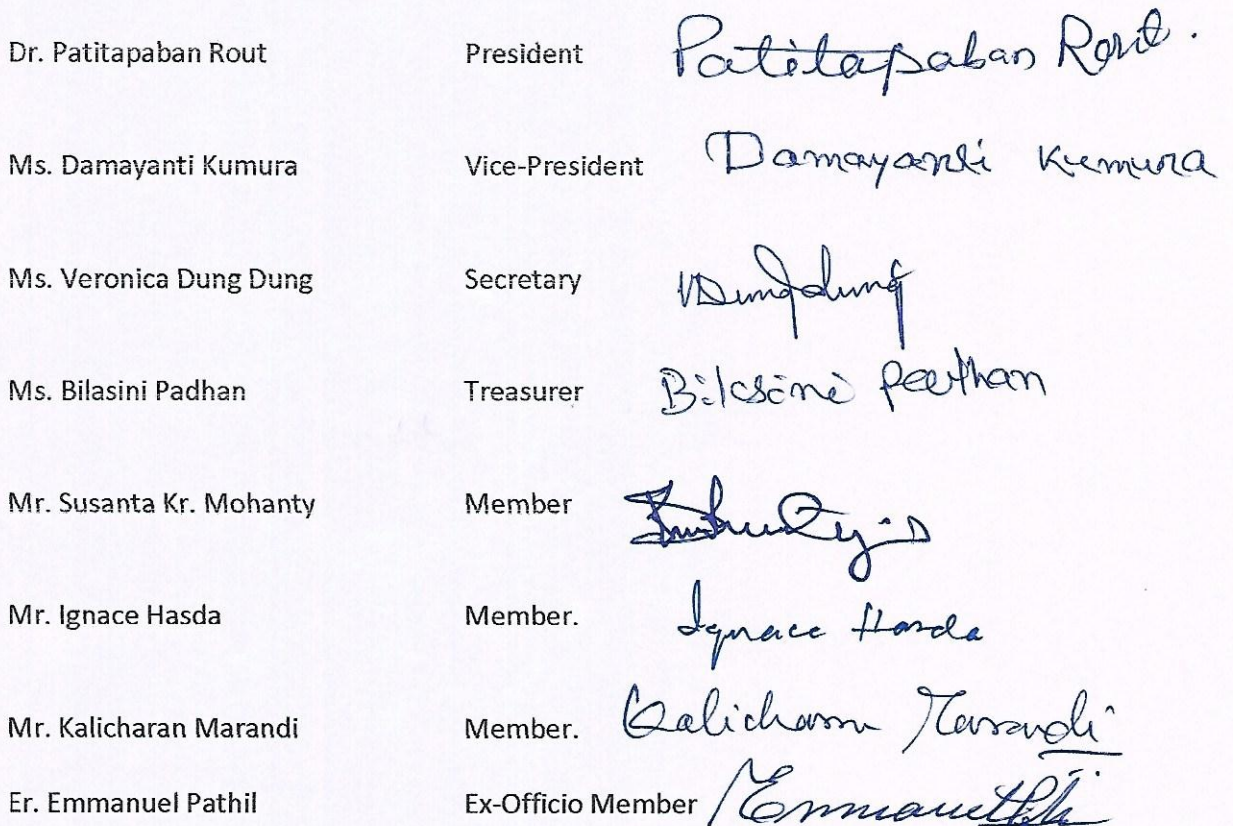 Dr. Patitapaban Rout President Patitapaban Rout.
Ms. Damayanti Kumura Vice-President Damayanti Kumura
Ms. Veronica Dung Dung Secretary VDungdung
Ms. Bilasini Padhan Treasurer Bilasini
Mr. Susanta Kr. Mohanty Member
Mr. Ignace Hasda Member. Ignace Hasda
Mr. Kalicharan Marandi Member. Kalicharan Marandi
Er. Emmanuel Pathil Ex-Officio Member